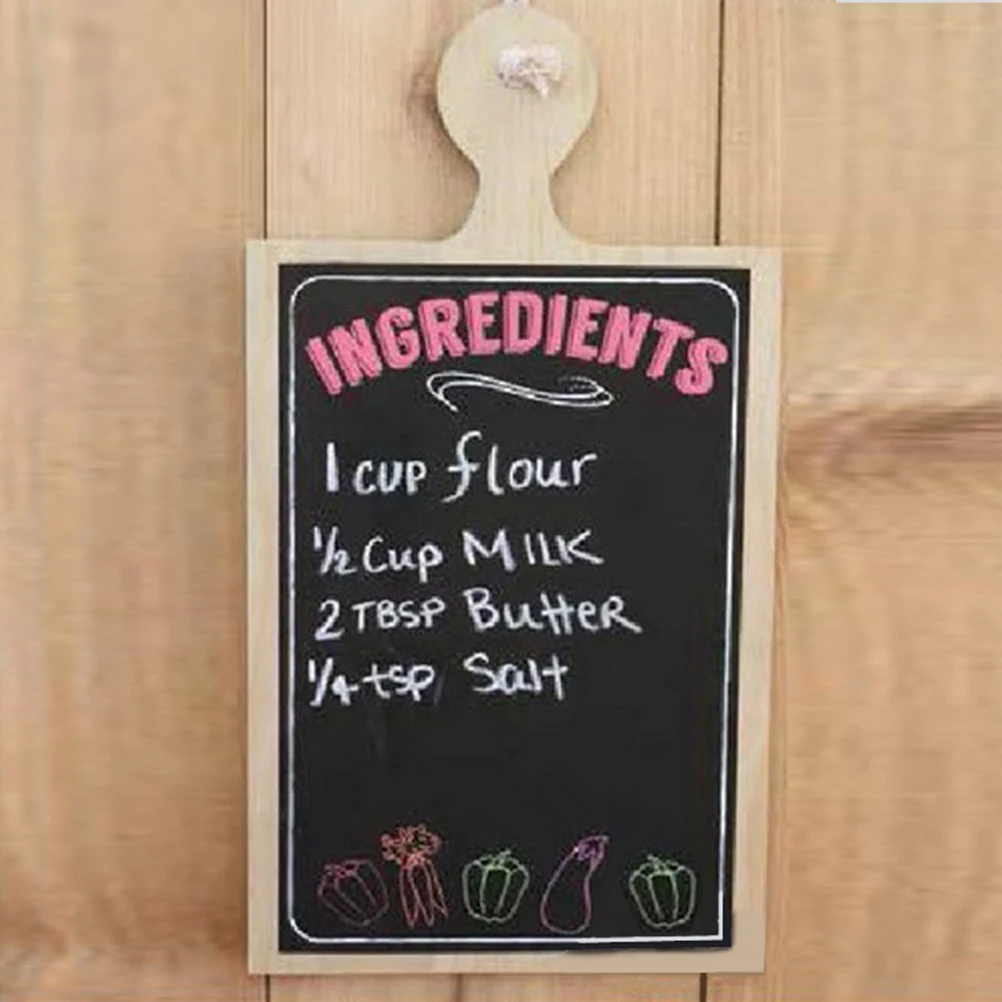 INGREDIENTS
1 CUP flour
1/2 Cup MILK
2 TBSP ButteR
1/4 tsp Salt